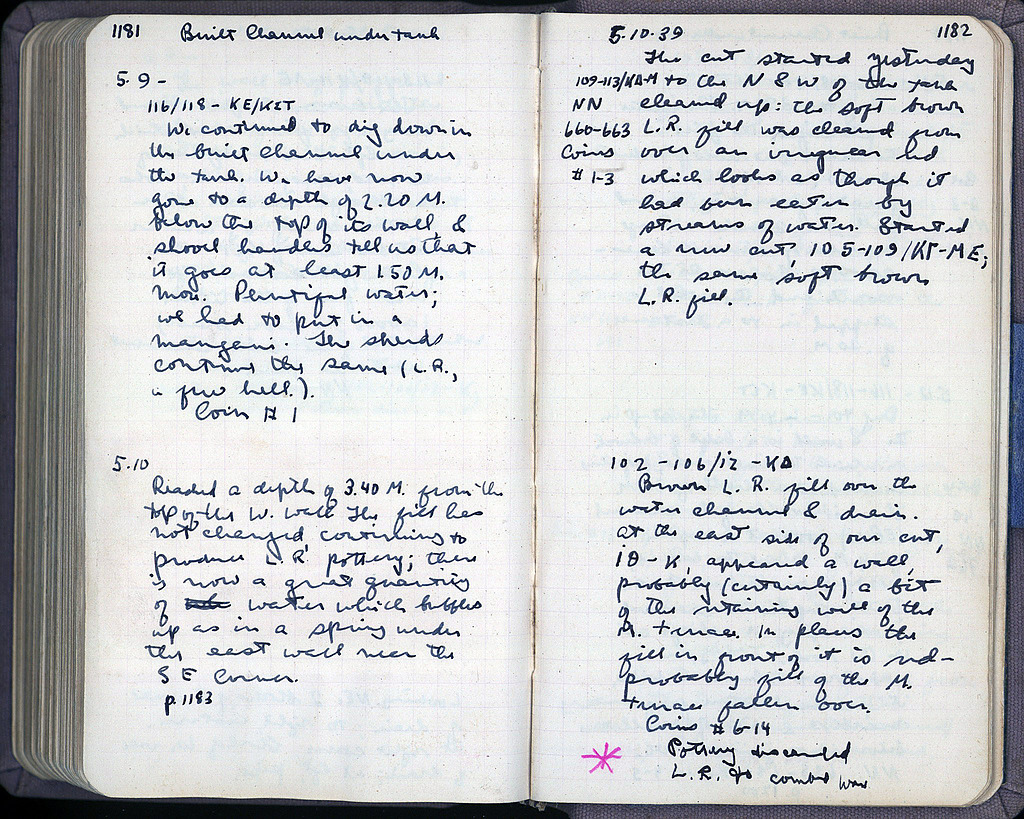 1181 Built Channel under tank
5.9 -
116/118 - KE/KET
We continued to dig down in
the built channel under
the tank. We have now
gone to a depth of 2.20 M.
below the top of its wall &
shovel handle tells us that
it goes at least 1.50 M.
more. Plentiful water;
we had to put in a
mangani. The sherds
continue the same (L.R.,
a few hell.).
Coin #1
5.10
Reached a depth of 3.40 M. from the
top of the W. wall. The fill has
not changed, continuing to
produce L.R. pottery; there
is now a great quantity
of water which bubbles
up as in a spring under
the east wall near the
SE corner.
p. 1183
5.10.39 1182
The cut started yesterday
109-113/KA-M to the N & W of the tank
NN cleaned up: the soft brown
660-663 L.R. fill was cleaned from
Coins over an irregular bed
#1-3 which looks as though it
had been eaten by
streams of water. Started
a new cut, 105-109/KT-ME;
the same soft brown
L.R. fill.
102-106/IZ-KA
Brown L.R. fill over the
water channel & drain.
At the east side of our cut,
IΘ-K, appeared a wall,
probably (certainly) a bit
of the retaining wall of the
M. terrace. In places the
fill in front of it is red -
probably fill of the M.
terrace fallen over.
Coins #6-14
Pottery discarded
L.R. to combed ware